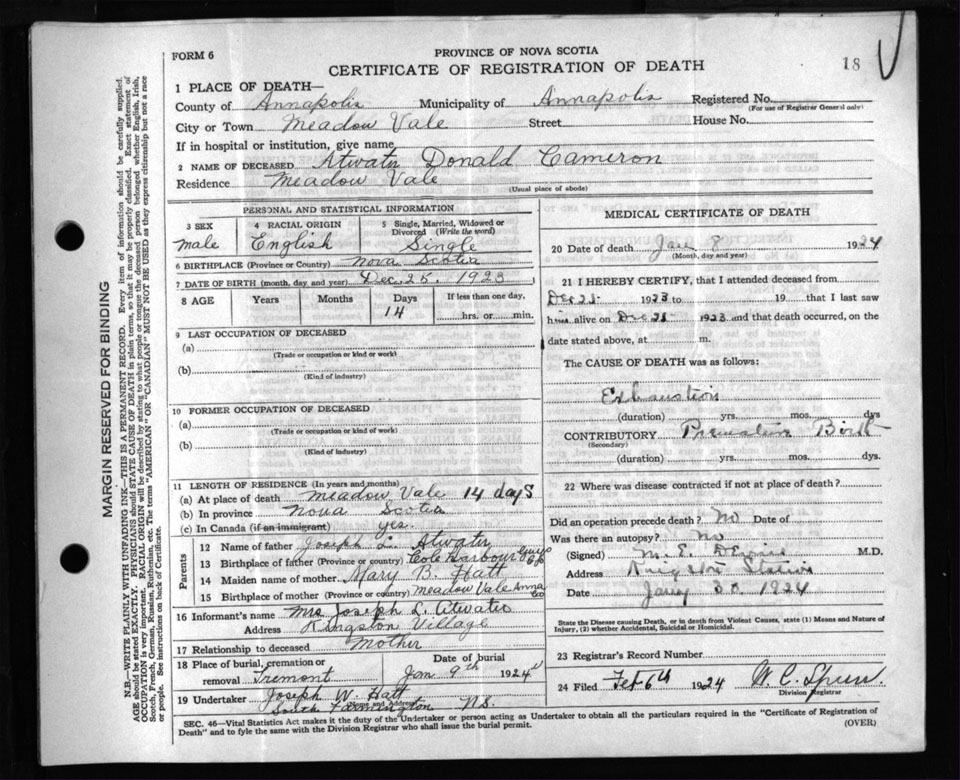 FORM 6
PROVINCE OF NOVA SCOTIA
18
CERTIFICATE OF REGISTRATION OF DEATH
1 PLACE OF DEATH—
County of Annapolis Municipality of Annapolis Registered No.
(For use of Registrar General only)
City or Town Meadow Vale Street House No.
If in hospital or institution, give name
2 NAME OF DECEASED Atwater Donald Cameron
Residence Meadow Vale
(Usual place of abode)
PERSONAL AND STATISTICAL INFORMATION
3 SEX 4 RACIAL ORIGIN 5 Single, Married, Widowed or
Divorced (Write the word)
male English Single
6 BIRTHPLACE (Province or Country) Nova Scotia
7 DATE OF BIRTH (month, day, and year) Dec. 25, 1923
8 AGE Years Months Days If less than one day,
14 hrs. or min.
9 LAST OCCUPATION OF DECEASED
(a)
(Trade or occupation or kind or work)
(b)
(Kind of industry)
10 FORMER OCCUPATION OF DECEASED
(a)
(Trade or occupation or kind of work)
(b)
(Kind of industry)
11 LENGTH OF RESIDENCE (In years and months)
(a) At place of death Meadow Vale 14 days
(b) In province Nova Scotia
(c) In Canada (if an immigrant) yes.
Parents
12 Name of father Joseph L. Atwater
13 Birthplace of father (Province or country) Cole Harbour Guys Co
14 Maiden name of mother Mary B. Hatt
15 Birthplace of mother (Province or country) Meadow Vale Anna Co
16 Informant's name Mrs Joseph L. Atwater
Address Kingston Village
17 Relationship to deceased Mother
18 Place of burial, cremation or Date of burial
removal Tremont Jan 9th 1924
19 Undertaker Joseph W. Hatt
(Name and Address)
South Farmington N.S.
MEDICAL CERTIFICATE OF DEATH
20 Date of death Jan 8 1924
(Month, day and year)
21 I HEREBY CERTIFY, that I attended deceased from
Dec 25 1923 to 19 that I last saw
him alive on Dec 25 1923 and that death occurred, on
date stated above, at m.
The CAUSE OF DEATH was as follows:
Exhaustion
(duration) yrs. mos. days
CONTRIBUTORY Premature Birth
(Secondary)
(duration) yrs. mos. days.
22 Where was disease contracted if not at place of death?
Did an operation precede death? No Date of
Was there an autopsy? No
(Signed) M. E. M.D.
Address Kingston Station
Date Jany 30 1924
State the Disease causing Death, or in death from Violent Causes, state (1) Means and Nature of
Injury, (2) whether Accidental, Suicidal or Homicidal.
23 Registrar's Record Number
24 Filed Feb 6th 1924 W. C.
Division Registrar
SEC. 46—Vital Statistics Act makes it the duty of the Undertaker or person acting as Undertaker to obtain all the particulars required in the "Certificate of Registration of
Death" and to fyle the same with the Division Registrar who shall issue the burial permit.
(OVER)
MARGIN RESERVED FOR BINDING
N.B.—WRITE PLAINLY WITH UNFADING INK—THIS IS A PERMANENT RECORD. Every item of information should be carefully supplied.
AGE should be stated EXACTLY. PHYSICIANS should STATE CAUSE OF DEATH in plain terms, so that it may be properly classified. Exact statement of
OCCUPATION is very important. RACIAL ORIGIN will be described by stating to what people or tongue the deceased person belonged whether English, Irish,
Scotch, French, German, Russian, Ruthenian, etc. The terms "AMERICAN" OR "CANADIAN" MUST NOT BE USED as they express citizenship but not a race
or people. See instructions on back of Certificate.